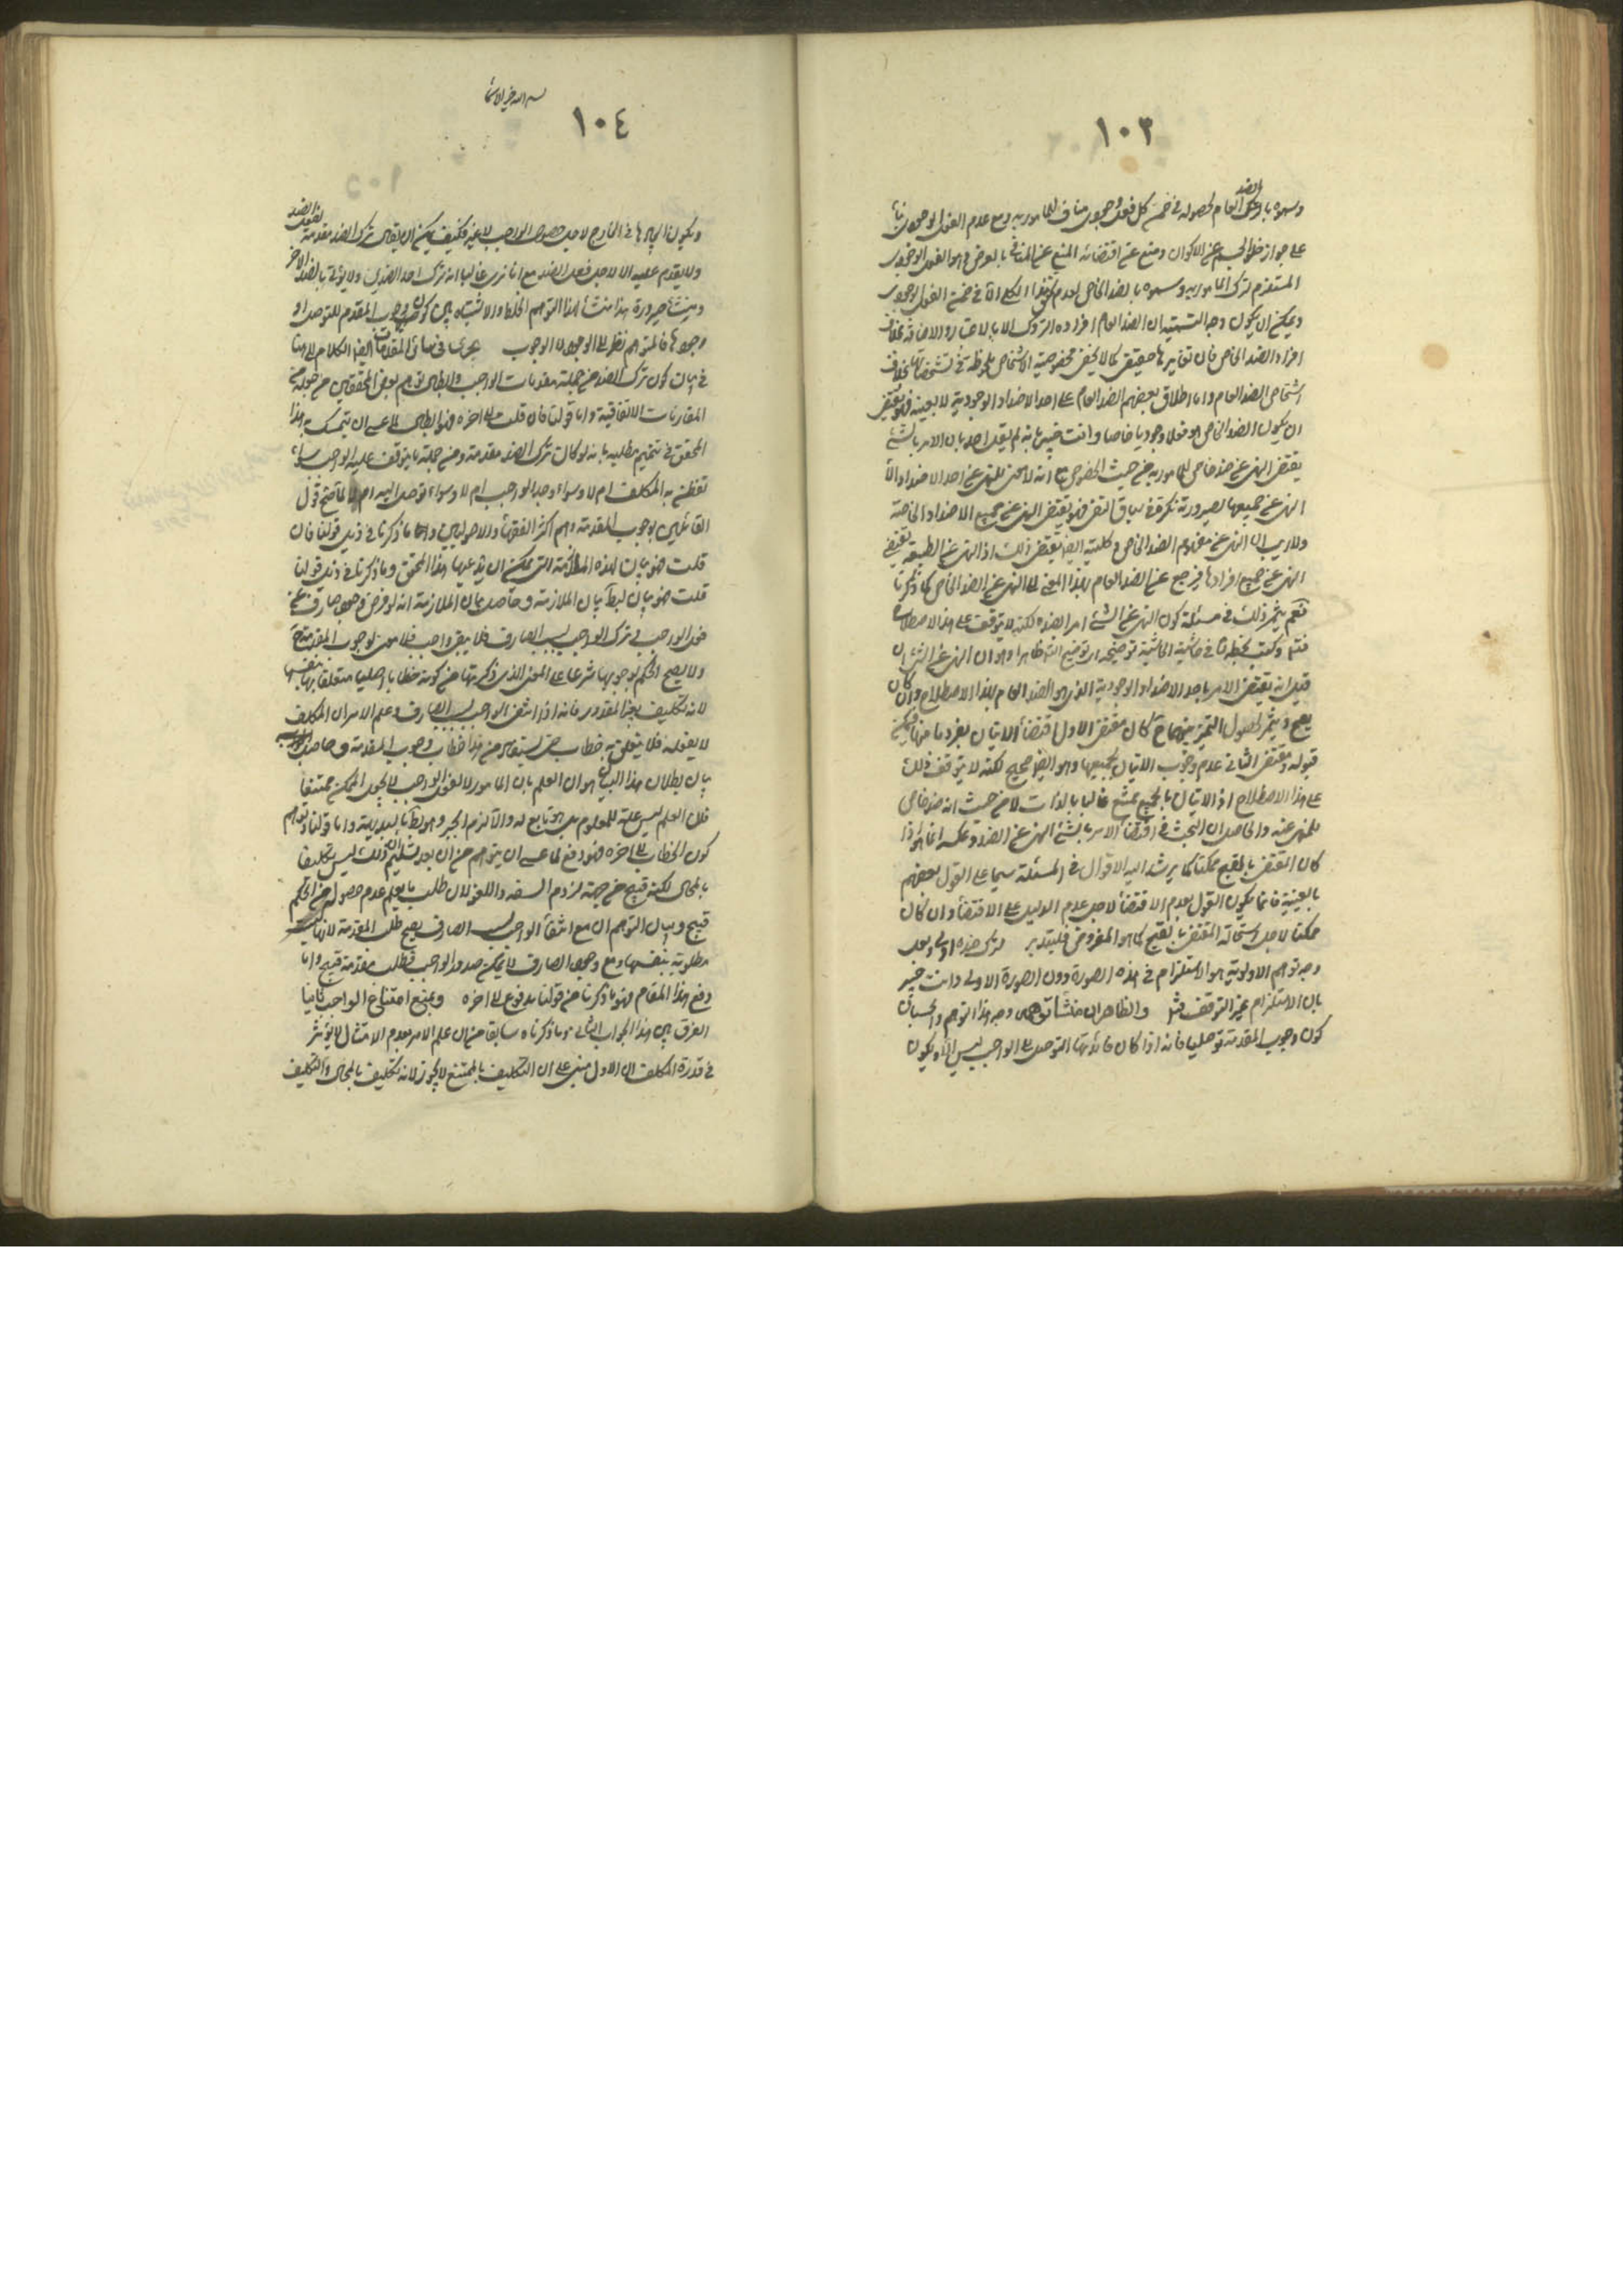 ١٠٣
وسموه بالضد العام لحصوله في ضمن كل فعل وجودي مناف للمامور به ومع عدم الفعل الوجودي بناء
على جواز خلو الجسم عن الاكوان ومنع عن اقتضائه المنع عن المنافي بالعرض هو الفعل الوجودي
المستلزم لترك المامور به وسموه بالضد الخاص لعدم تحقق هذا الكلي الا في ضمن الفعل الوجودي
ويمكن ان يكون وجه التسمية ان الضد العام افراده التروك الا بالاعتبار والاضافة بخلاف
افراد الضد الخاص فان تغايرها حقيقي كما لا يخفى فخصوصية الاشخاص ملحوظة في تشخصاتها بخلاف
اشخاص الضد العام واما اطلاق بعضهم الضد العام على احد الاضداد الوجودية لا بعينه فهو يقتضي
ان يكون الضد الخاص هو فعلا وجوديا خاصا وانت خبير بانه لم يقل احد بان الامر بالشئ
يقتضي النهي عن ضد خاص للمامور به من حيث الخصوص مع انه لا معنى للنهي عن احد الاضداد الا
النهي عن جميعها لصيرورته نكرة في سياق النفي فهو يقتضي النهي عن جميع الاضداد الخاصة
ولا ريب ان النهي عن مفهوم الضد الخاص وكليته ايضا يقتضي ذلك اذ النهي عن الطبيعة يقتضي
النهي عن جميع افرادها فيرجع عن الضد العام بهذا المعنى الى النهي عن الضد الخاص كما ذكرنا
نعم يثمر ذلك في مسئلة كون النهي عن الشئ امرا بضده لكنه لا يتوقف على هذا الاصطلاح
منه وكتب بخطه في حاشية الحاشية توضيحه اي توضيح الثمر ظاهرا وهو ان النهي عن الشئ ان
قيل انه يقتضي الامر باحد الاضداد الوجودية الذي هو الضد العام بهذا الاصطلاح وان كان
يصح ويثمر لحصول التميز بينهما ح كان مقتضى الاول اقتضاء الاتيان بفرد ما منها فيمكن
قبوله ومقتضى الثاني عدم وجوب الاتيان بجميعها وهو ايضا صحيح لكنه لا يتوقف ذلك
على هذا الاصطلاح اذ الاتيان بالجميع ممتنع غالبا بالذات لا من حيث انه ضد خاص
للمنهي عنه والحاصل ان البحث في اقتضاء الامر بالشئ النهي عن الضد وعكسه انما هو اذا
كان المقتضى بالفتح ممكنا كما يرشد اليه الاقوال في المسئلة سيما على القول بعضهم
بالعينية فانما يكون القول بعدم الاقتضاء لاجل عدم الدليل على الاقتضاء وان كان
ممكنا لا لاجل استحالة المقتضى بالفتح كما هو المفروض فليتدبر لترك ضده اولى لعل
وجه توهم الاولوية هو الاستلزام في هذه الصورة دون الصورة الاولى وانت خبير
بان الاستلزام غير التوقف منه والظاهر ان منشأ توهمه وجه هذا التوهم والحسبان
كون وجوب المقدمة توصليا فانه اذا كان فائدتها التوصل الى الواجب ليس الا ويكون
بسم الله خير الاسماء
١٠٤
ويكون ايجابها في الخارج لاجل حصول الواجب لا غير فكيف يمكن ان يقال ترك الضد مقدمة لفعل الضد
ولا يقدم عليه الا لاجل فعل الضد مع انا نرى غالبا انه ترك احد الضدين ولا يؤتى بالضد الاخر
ومنشأ صيرورة هذا منشأ لهذا التوهم الخلط والاشتباه بين كون وجوب المقدم للتوصل او
وجودها فالمتوهم نظر الى الوجود لا الوجوب يجري في سائر المقدمات ايضا الكلام الى هنا
في بيان كون ترك الضد من جملة مقدمات الواجب وابطال توهم بعض المحققين من جعله من
المقارنات الاتفاقية واما قولنا فان قلت الى اخره فهو ابطال لما عسى ان يتمسك به هذا
المحقق في تتميم مطلبه بانه لو كان ترك الضد مقدمة ومن جملة ما يتوقف عليه الواجب سواء
تفطن به المكلف ام لا وسواء وجد الواجب ام لا وسواء توصل اليه ام لا لما صح قول
القائلين بوجوب المقدمة وهم اكثر الفقهاء والاصوليين واما ما ذكرنا في ذيل قولنا فان
قلت فهو بيان لهذه الملازمة التي يمكن ان يدعيها هذا المحقق وما ذكرنا في ذيل قولنا
قلت فهو بيان لبطلان الملازمة وحاصل بيان الملازمة انه لو فرض وجود صارف عن
فعل الواجب في ترك الواجب لسبب الصارف فلا يبقى واجب فلا معنى لوجوب المقدمة ح
ولا يصح الحكم بوجوبها شرعا على المعنى الذي ذكرتها من كونه خطابا اصليا متعلقا بها بنفسها
لانه تكليف بغير المقدور فانه اذا انتفى الواجب لسبب الصارف وعلم الامر ان المكلف
لا يفعله فلا يتعلق به خطاب حتى يستفاد من هذا الخطاب وجوب المقدمة وحاصل الجواب
بيان بطلان هذا البيان هو ان العلم بان المامور لا يفعل الواجب لا يجعل الممكن ممتنعا
فان العلم ليس علة للمعلوم بل هو تابع له والا لزم الجبر وهو باطل بالبديهة واما قولنا وتوهم
كون الخطاب الى اخره فهو دفع لما عسى ان يتوهم من ان بعد تسليم ان ذلك ليس تكليفا
بالمحال لكنه قبيح من جهة لزوم السفه واللغو لان طلب ما يعلم عدم حصوله من الحكيم
قبيح وبيان التوهم ان مع انتفاء الواجب لسبب الصارف يصح طلب المقدمة لانها ليست
مطلوبة بنفسها ومع وجود الصارف لا يمكن صدور الواجب فطلب مقدمة قبيح واما
دفع هذا المقام فهو ما ذكرنا من قولنا مدفوع الى اخره وبمنع امتناع الواجب ثانيا
الفرق بين هذا الجواب الثاني وما ذكرناه سابقا من ان علم الامر بعدم الامتثال لا يؤثر
في قدرة المكلف ان الاول مبني على ان التكليف بالممتنع لا يجوز لانه تكليف بالمحال والتكليف